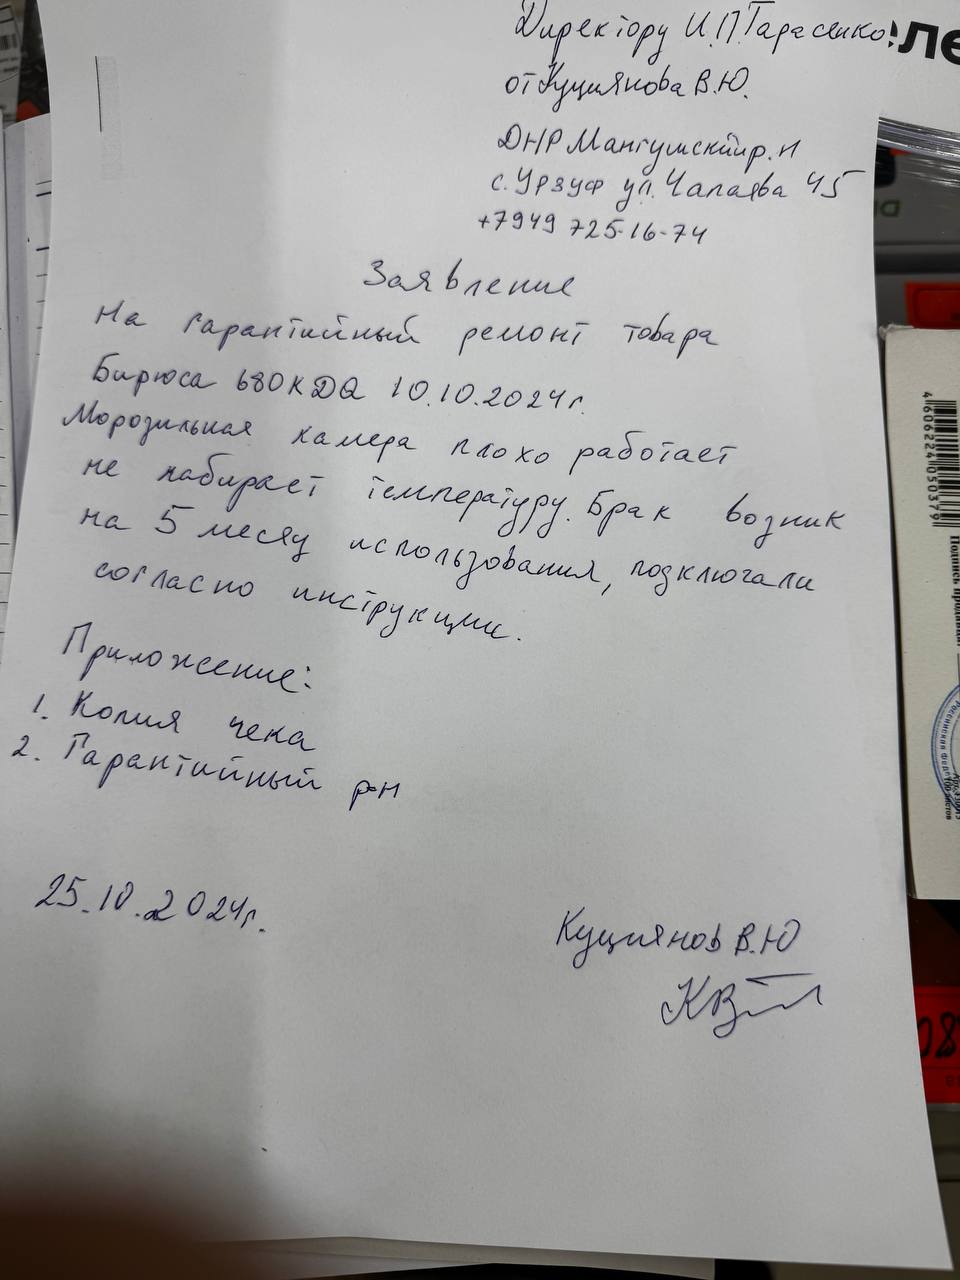 Директору И.П.Тарасенко
от Куциянова В.Ю.
ДНР Мангушский р.н
с. Урзуф ул. Чапаева 45
+7949 725-16-74
Заявление
на гарантийный ремонт товара
Бирюса 680KDQ 10.10.2024г.
Морозильная камера плохо работает
не набирает температуру. Брак возник
на 5 месяцу использования, подключали
согласно инструкции.
Приложение:
1. Копия чека
2. Гарантийный р-н
25.10.2024г.
Куциянов В.Ю
ле
4 606224 050379
Подпись
Российская
08